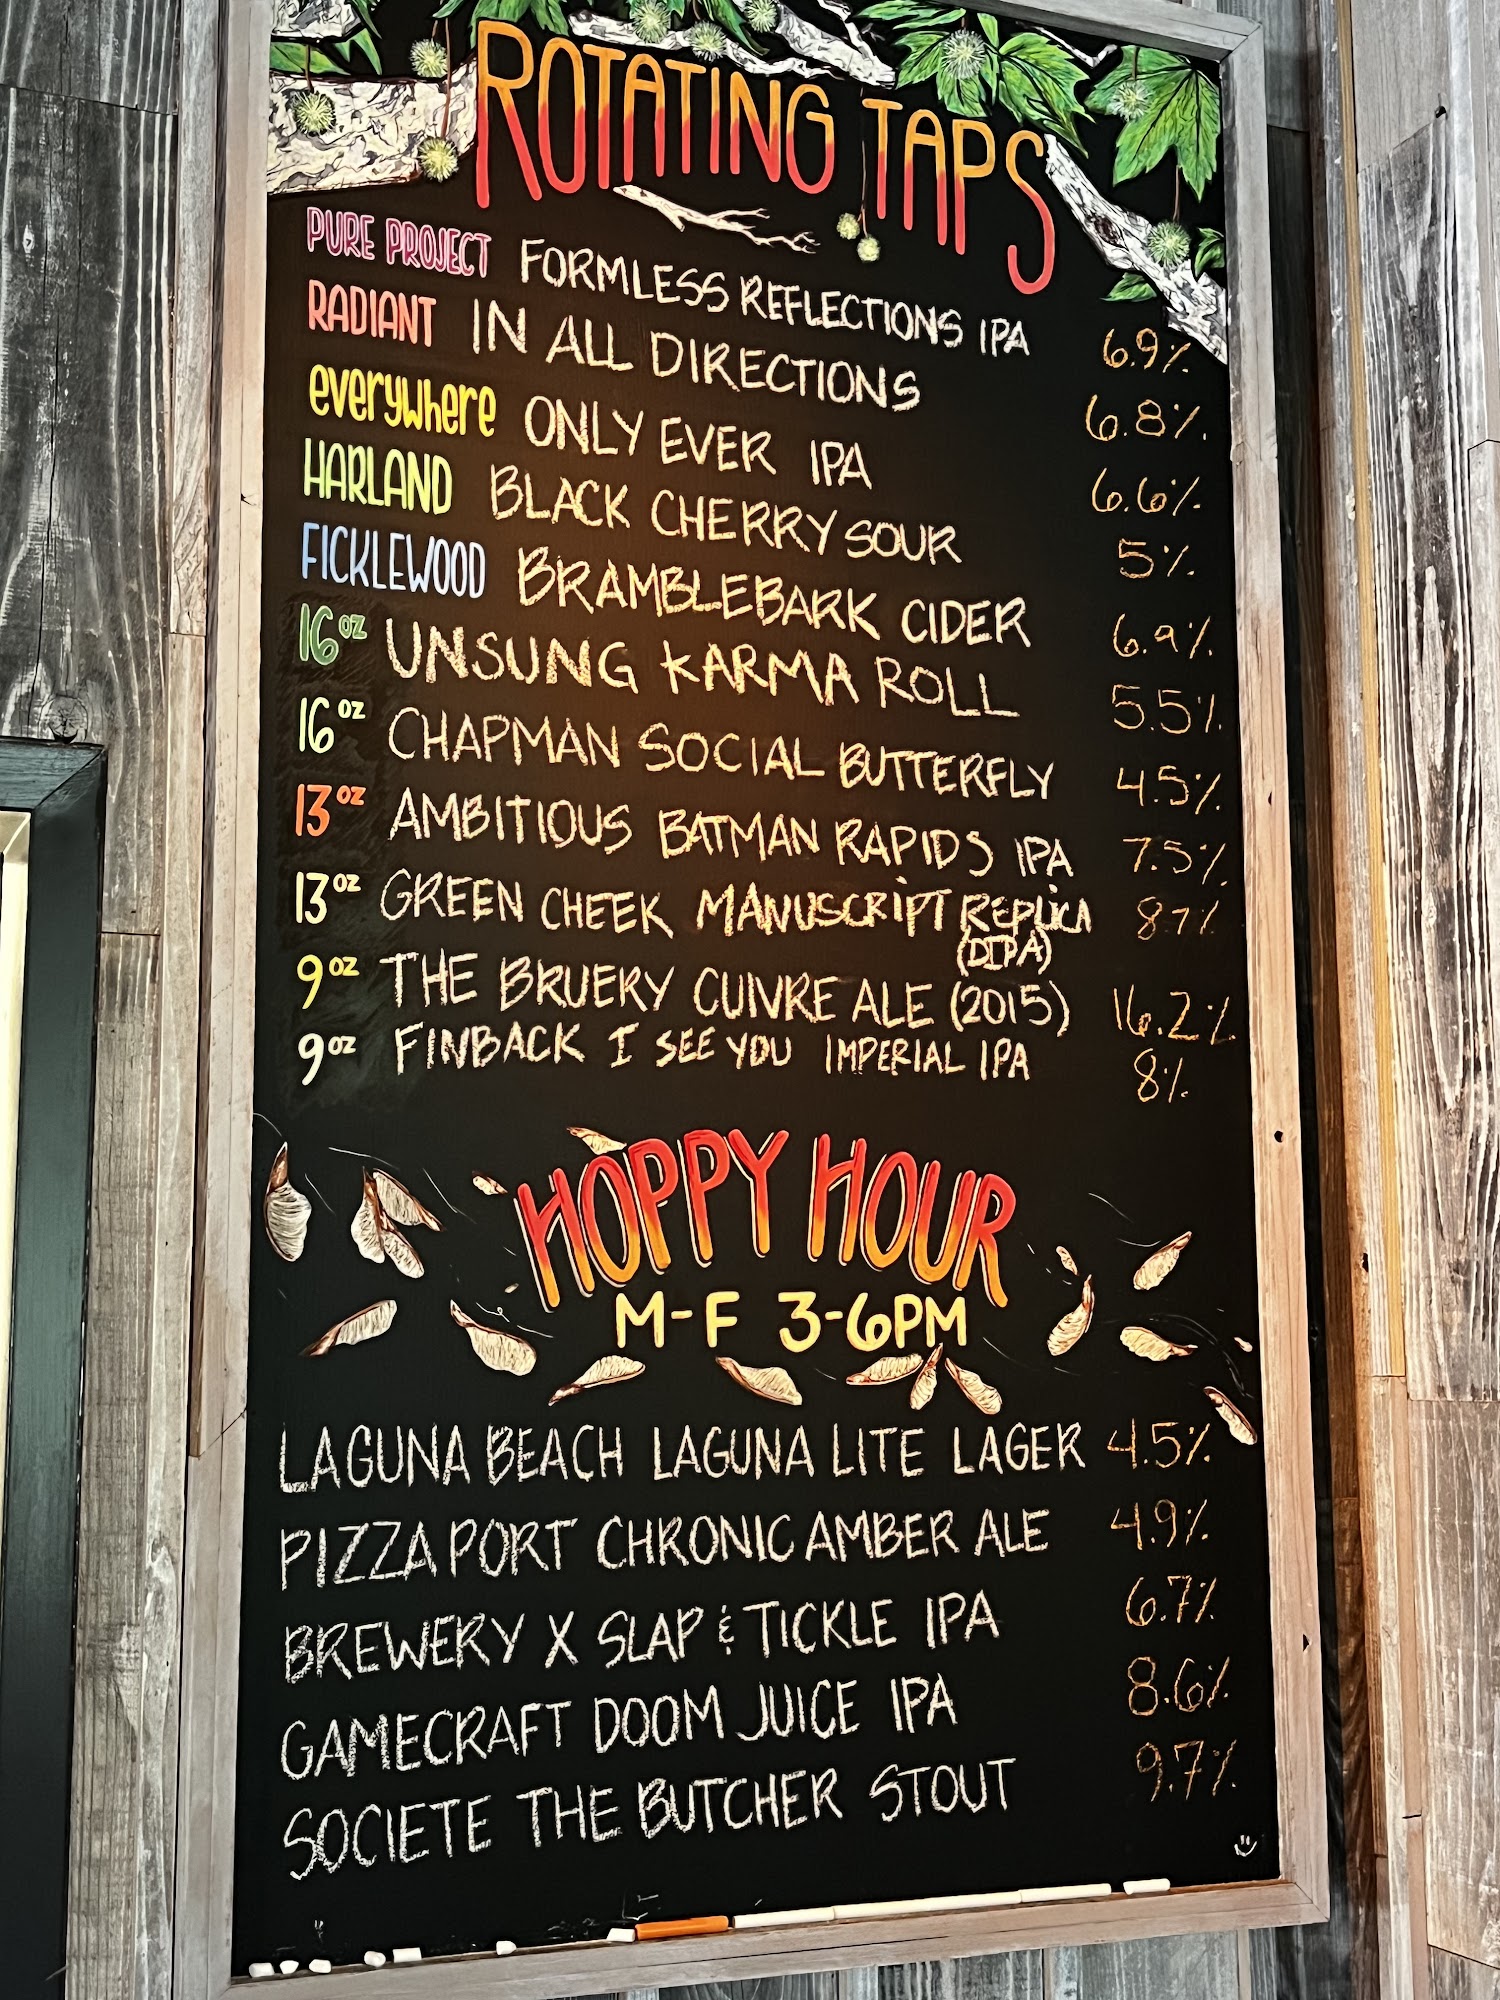 ROTATING TAPS
PURE PROJECT FORMLESS REFLECTIONS IPA 6.9%
RADIANT IN ALL DIRECTIONS 6.8%
everywhere ONLY EVER IPA 6.6%
HARLAND BLACK CHERRY SOUR 5%
FICKLEWOOD BRAMBLEBARK CIDER 6.9%
16 OZ UNSUNG KARMA ROLL 5.5%
16 OZ CHAPMAN SOCIAL BUTTERFLY 4.5%
13 OZ AMBITIOUS BATMAN RAPIDS IPA 7.5%
13 OZ GREEN CHEEK MANUSCRIPT REPLICA 8.1%
(DIPA)
9 OZ THE BRUERY CUIVRE ALE (2015) 16.2%
9 OZ FINBACK I SEE YOU IMPERIAL IPA 8%
HOPPY HOUR
M-F 3-6PM
LAGUNA BEACH LAGUNA LITE LAGER 4.5%
PIZZA PORT CHRONIC AMBER ALE 4.9%
BREWERY X SLAP & TICKLE IPA 6.7%
GAMECRAFT DOOM JUICE IPA 8.6%
SOCIETE THE BUTCHER STOUT 9.7%